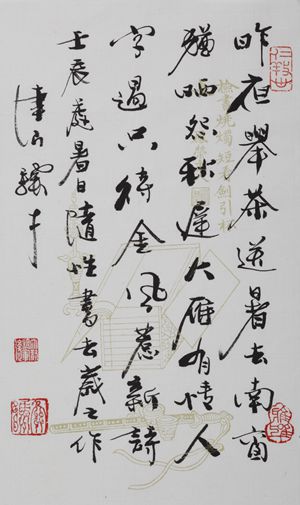 昨夜舉茶送暑去南窗
猶哂怨秋遲大雁有情人
字過只待金風惹新詩
壬辰處暑日隨性書去歲之作
檢書燒燭短看劍引杯